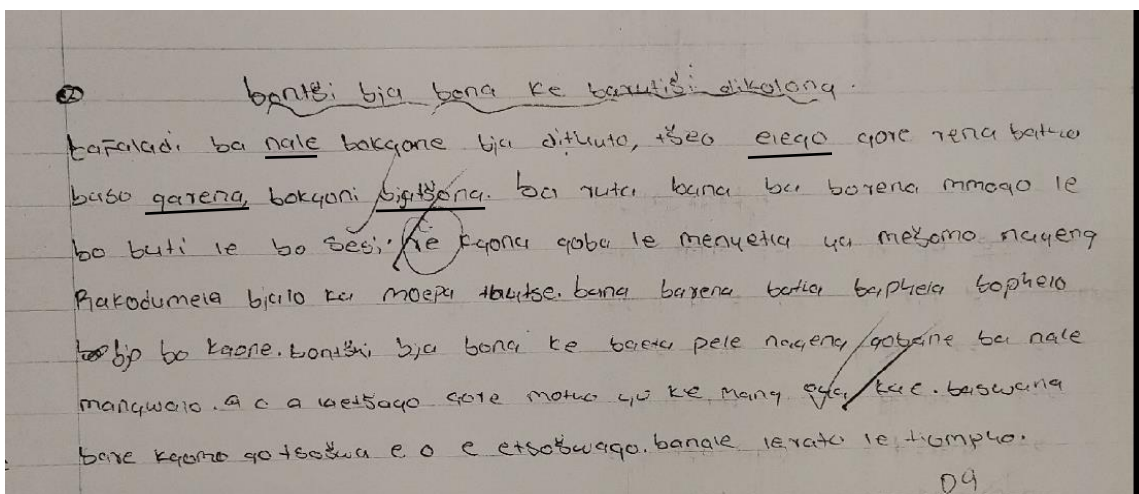 ② bontši bja bona ke barutiši dikolong.
bafaladi ba nale bokgone bja dithuto, tšeo elego gore rena batho
baso garena, bokgoni bjatšona. ba ruta bana ba borena mmogo le
bo buti le bo sesi. Re kgona goba le menyetla ya mešomo nageng
Rakodumela bjalo ka moepa thutse. bana barena batla baphela bophelo
bjo bo kaone. bontšhi bja bona ke baeta pele nageng gobane ba nale
mangwalo. a c a laetšago gore motho yo ke mang kae. baswana
bare kgomo go tsošwa e o e etsošwago. banale lerato le tlompho.
09